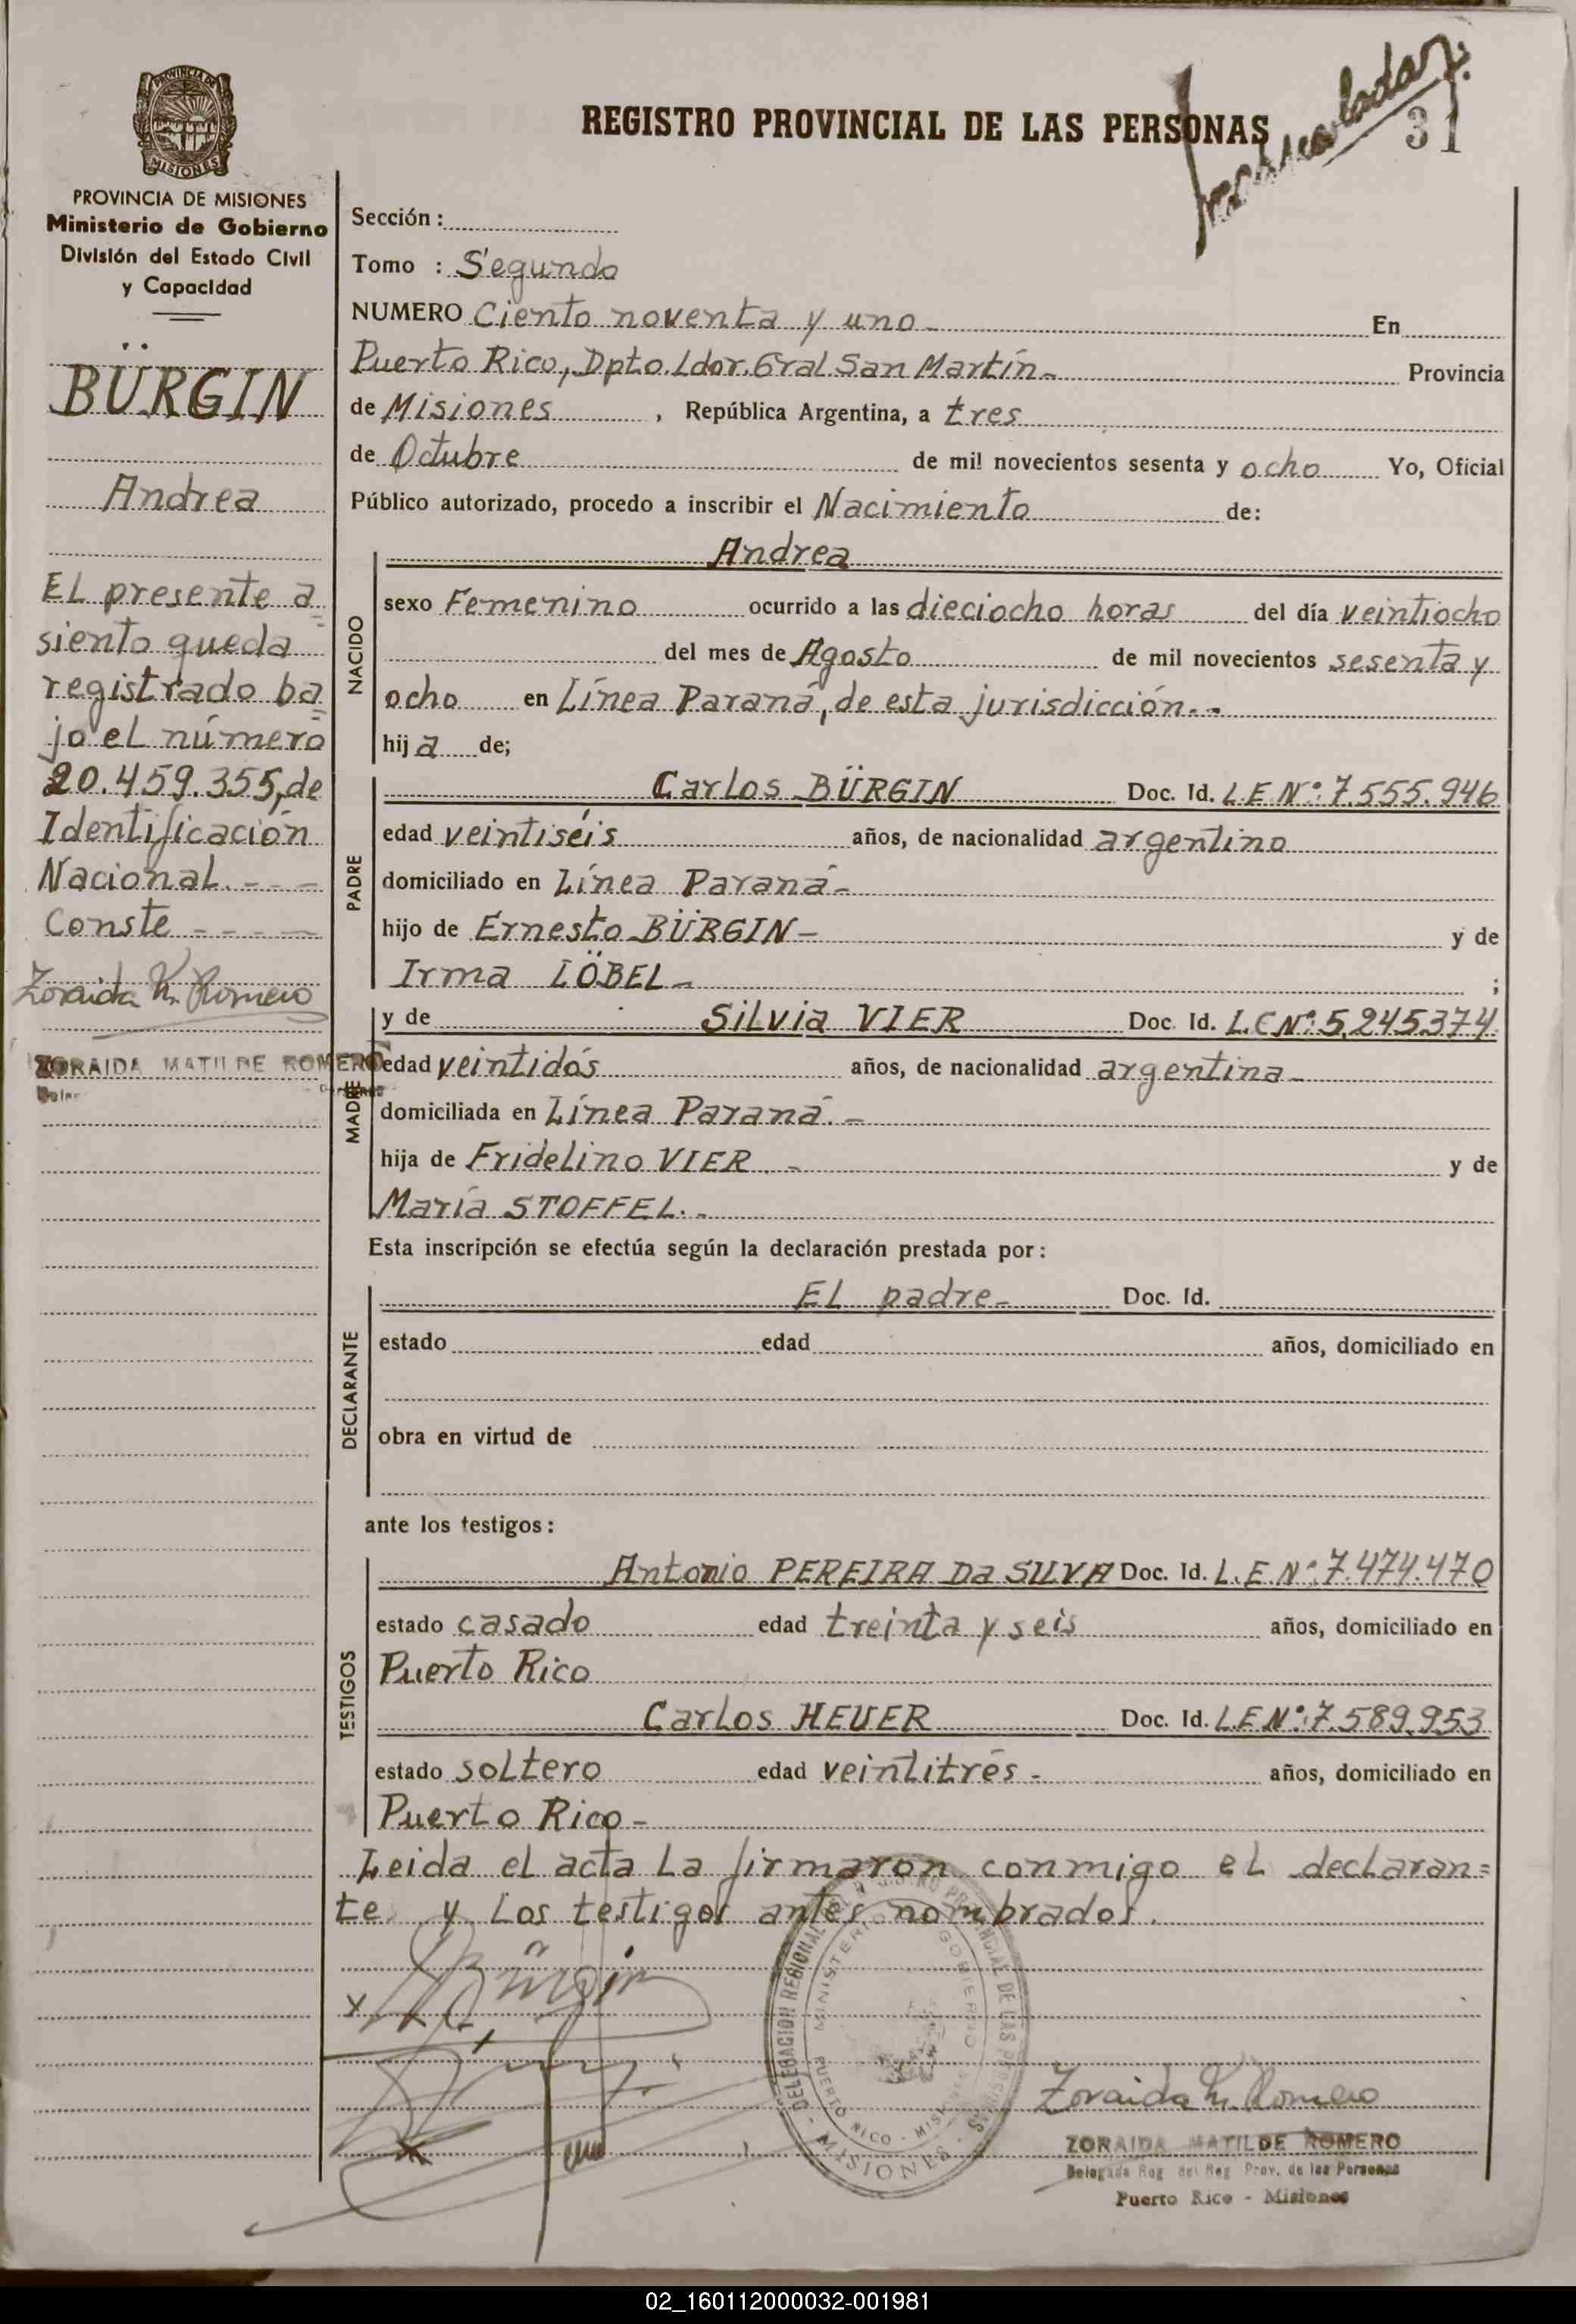 Matriculada
31
REGISTRO PROVINCIAL DE LAS PERSONAS
PROVINCIA DE MISIONES
PROVINCIA DE MISIONES
Ministerio de Gobierno
División del Estado Civil
y Capacidad
BÜRGIN
Andrea
EL presente a=
siento queda
registrado ba=
jo el número
20.459.355, de
Identificación
Nacional. - - -
Conste - - - -
Zoraida M. Romero
ZORAIDA MATILDE ROMERO
Sección :
Tomo : Segundo
NUMERO Ciento noventa y uno - En
Puerto Rico, Dpto. Ldor. Gral San Martín.- Provincia
de Misiones , República Argentina, a tres
de Octubre de mil novecientos sesenta y ocho Yo, Oficial
Público autorizado, procedo a inscribir el Nacimiento de:
Andrea
NACIDO
sexo Femenino ocurrido a las dieciocho horas del día veintiocho
del mes de Agosto de mil novecientos sesenta y
ocho en Línea Paraná, de esta jurisdicción.-
hija de;
PADRE
Carlos BÜRGIN Doc. Id. L.E Nº: 7.555.946
edad veintiséis años, de nacionalidad argentino
domiciliado en Línea Paraná-
hijo de Ernesto BÜRGIN - y de
Irma LÖBEL - ;
MADRE
y de Silvia VIER Doc. Id. L.C Nº: 5.245.374
edad veintidós años, de nacionalidad argentina -
domiciliada en Línea Paraná. -
hija de Fridelino VIER. - y de
María STOFFEL. -
Esta inscripción se efectúa según la declaración prestada por :
DECLARANTE
EL padre - Doc. Id.
estado edad años, domiciliado en
obra en virtud de
ante los testigos :
TESTIGOS
Antonio PEREIRA Da SILVA Doc. Id. L.E. Nº: 7.474.470
estado casado edad treinta y seis años, domiciliado en
Puerto Rico
Carlos HEUER Doc. Id. L.E Nº: 7.589.953
estado soltero edad veintitrés - años, domiciliado en
Puerto Rico -
Leida el acta La firmaron conmigo eL declaran=
te y Los testigos antes nombrados.
x Bürgin
DELEGACION REGIONAL DEL REGISTRO PROVINCIAL DE LAS PERSONAS - MISIONES -
MINISTERIO DE GOBIERNO
PUERTO RICO - MISIONES
Zoraida M. Romero
ZORAIDA MATILDE ROMERO
Delegada Reg del Reg Prov. de las Personas
Puerto Rico - Misiones
02_160112000032-001981